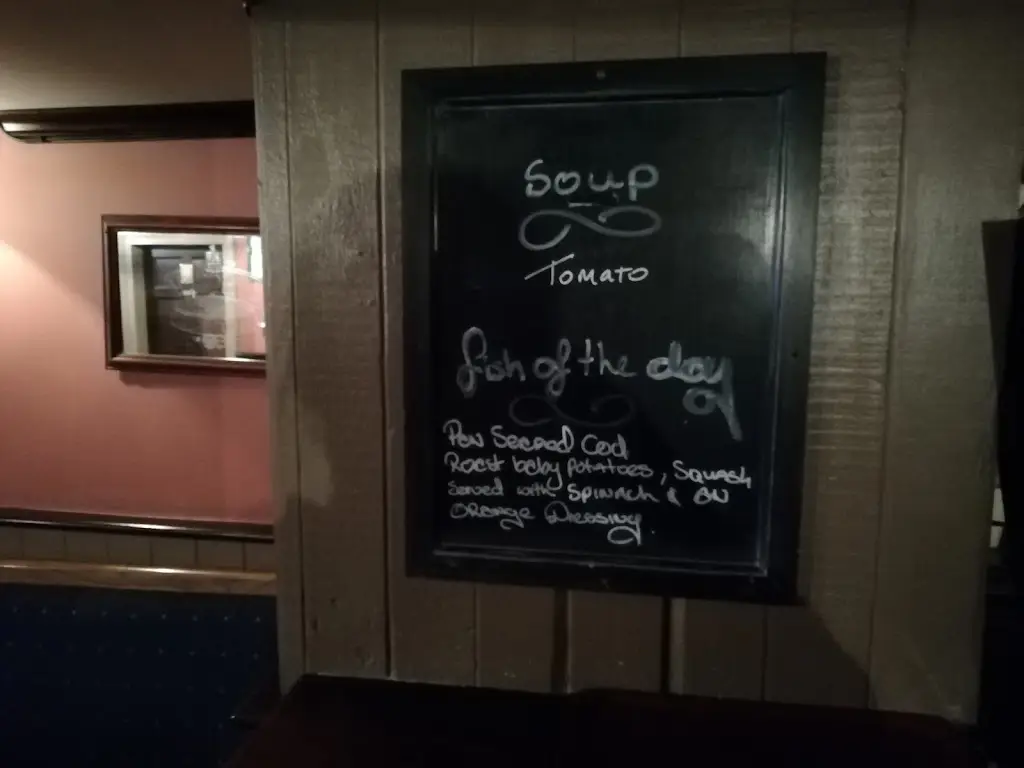 Soup
Tomato
fish of the day
Pan Seared Cod
Roast baby Potatoes, Squash
Served with Spinach & an
Orange Dressing.